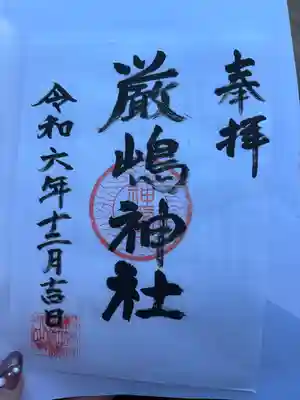 奉拝
厳嶋神社
令和六年十二月吉日